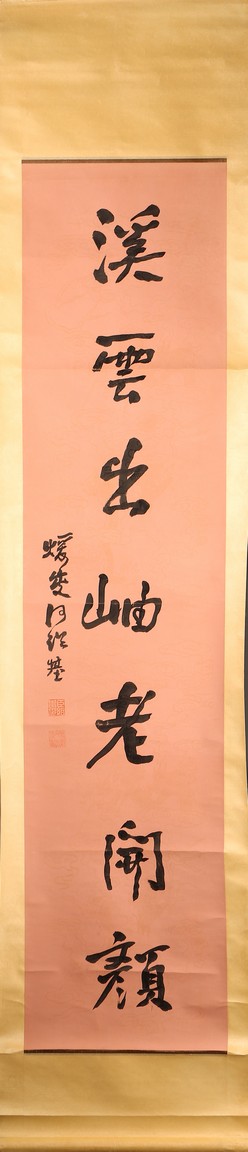 溪雲出岫老開顏
蝯叟何紹基